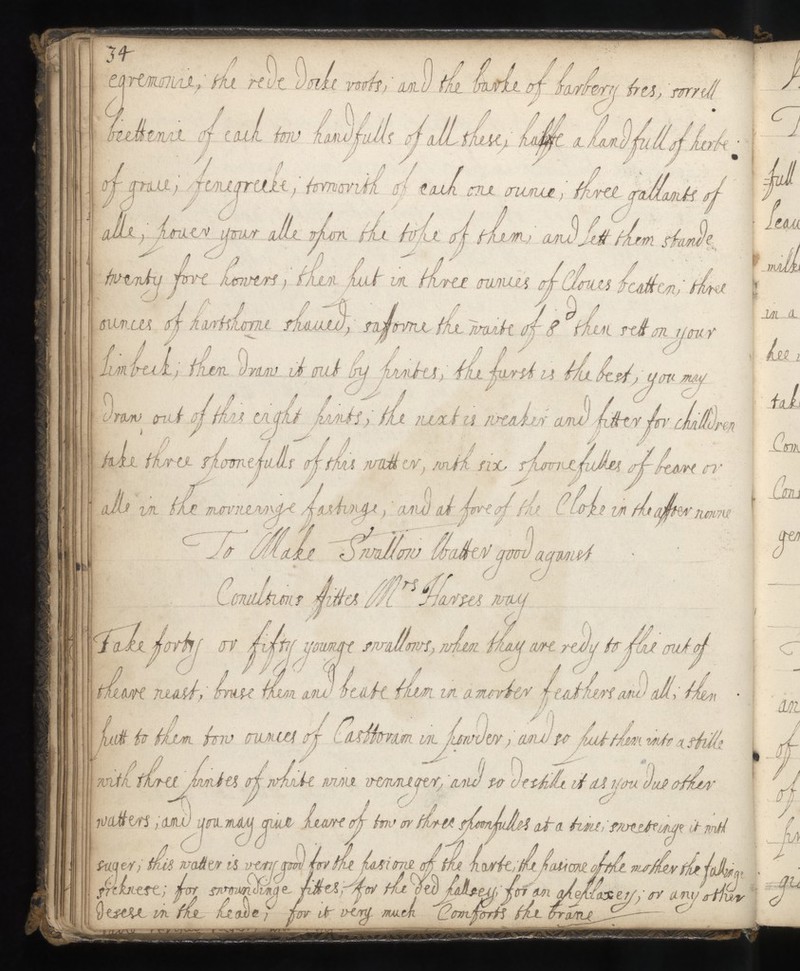 34
egremonie, the rede Docke roots, and the barke of barbery tres, sorrell
biettenie of each tow handfulls of all these, halfe a handfull of herbe
of grace, fenegreeke, tormorith of each one ounce, three gallants of
alle, pouer your alle opon the tope of them, and Lett them stande
twenty fore howers, then put in three ounces of Cloues beatten, three
ounces of hartshorne shaued, safforne the waite of 8d then sett on your
Limbeck, then Draw it out by pintes, the furst is the best, you may
Draw out of this eight pints, the next is weaker and fitter for childdren
take three spoonefulls of this watter, with six spoonefulles of beare or
alle in the morneinge fastinge, and at fore of the Cloke in the affter noone
To Make Swallow Watter good aganst
Conulsions ffittes Mrs Harses way
Take forty or fifty younge swallows, when thay are redy to flie out of
theare neast, bruse them and beate them in a morter feathers and all, then
putt to them tow ounces of Casttoram in powder, and so put them into a stille
with three pintes of white wine venneger, and so Destille it as you Due other
watters, and you may giue heare of tow or three spoonfulles at a time, sweeteinge it with
suger, this watter is very good for the pasione of the harte, the pasione of the mother the fallinge
sicknese, for swoundinge fittes, for the Ded pallsey, for an apeplaxey, or any other
Desese in the heade, for it very much Comforts the brane